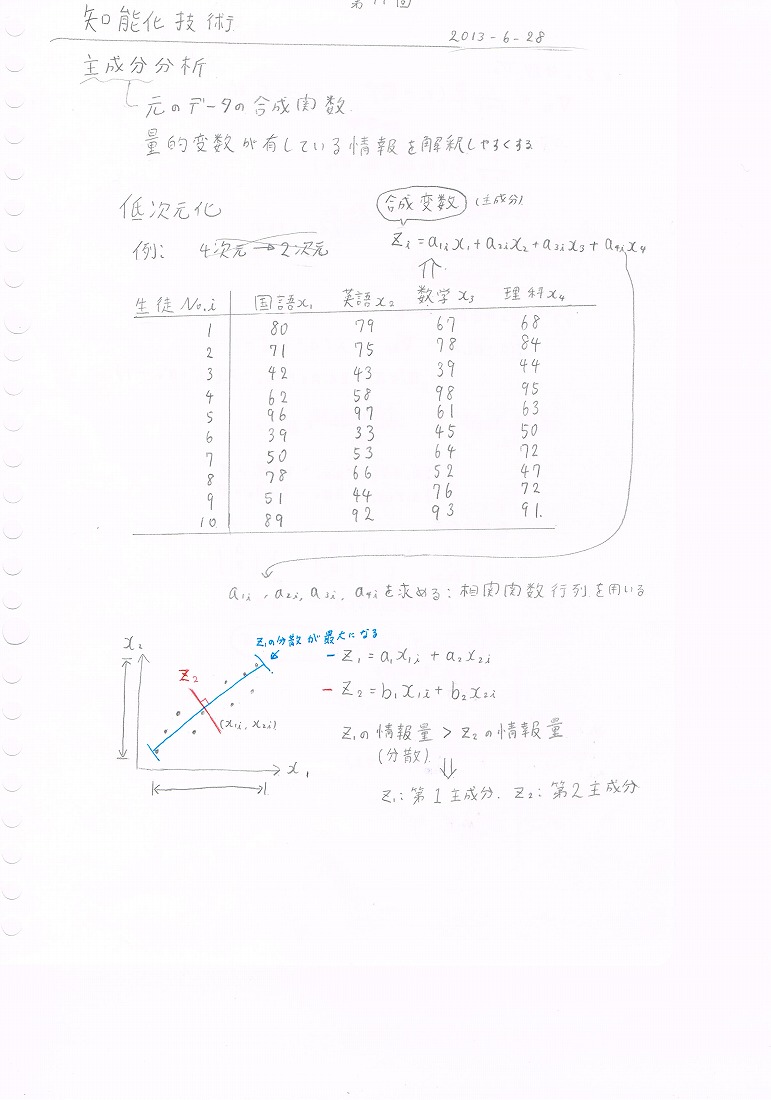 第11回
知能化技術
2013-6-28
主成分分析
元のデータの合成関数
量的変数が有している情報を解釈しやすくする
低次元化
合成変数 (主成分)
例: 4次元→2次元
Zi = a1i x1 + a2i x2 + a3i x3 + a4i x4
生徒No.i 国語x1 英語x2 数学x3 理科x4
1 80 79 67 68
2 71 75 78 84
3 42 43 39 44
4 62 58 98 95
5 96 97 61 63
6 39 33 45 50
7 50 53 64 72
8 78 66 52 47
9 51 44 76 72
10 89 92 93 91.
a1i, a2i, a3i, a4iを求める: 相関関数行列を用いる
x2
Z1の分散が最大になる
Z2
(x1i, x2i)
x1
- Z1 = a1x1i + a2x2i
- Z2 = b1x1i + b2x2i
Z1の情報量 > Z2の情報量
(分散)
Z1: 第1主成分. Z2: 第2主成分